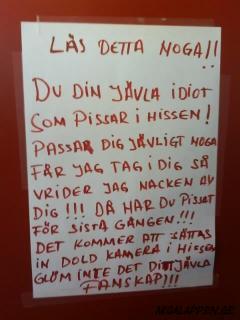 LÄS DETTA NOGA!!
DU DIN JÄVLA IDIOT
SOM PISSAR I HISSEN!
PASSAR DIG JÄVLIGT NOGA
FÅR JAG TAG I DIG SÅ
VRIDER JAG NACKEN AV
DIG!!! DÅ HAR DU PISSAT
FÖR SISTA GÅNGEN!!!
DET KOMMER ATT SÄTTAS
IN DOLD KAMERA I HISSEN
GLÖM INTE DET DITT JÄVLA
FANSKAP!!!
ARGALAPPEN.SE